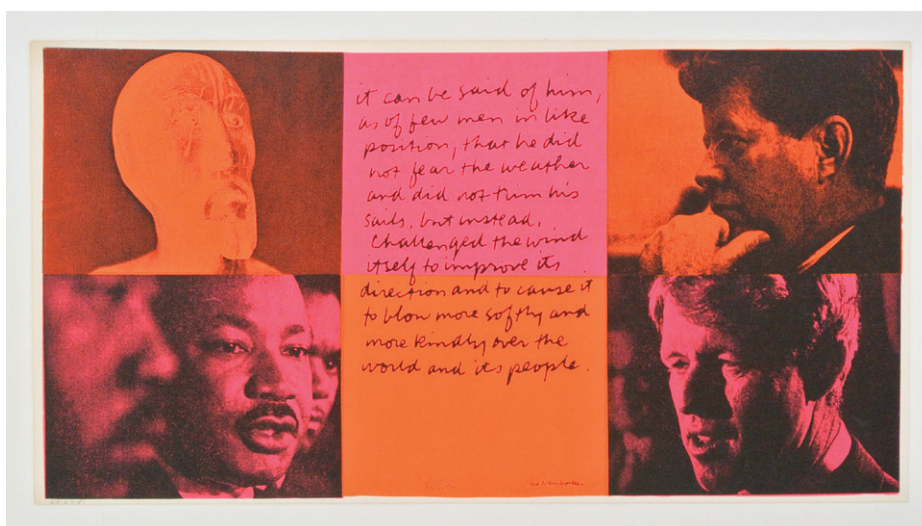 it can be said of him,
as of few men in like
position, that he did
not fear the weather
and did not trim his
sails, but instead,
challenged the wind
itself to improve its
direction and to cause it
to blow more softly and
more kindly over the
world and its people.